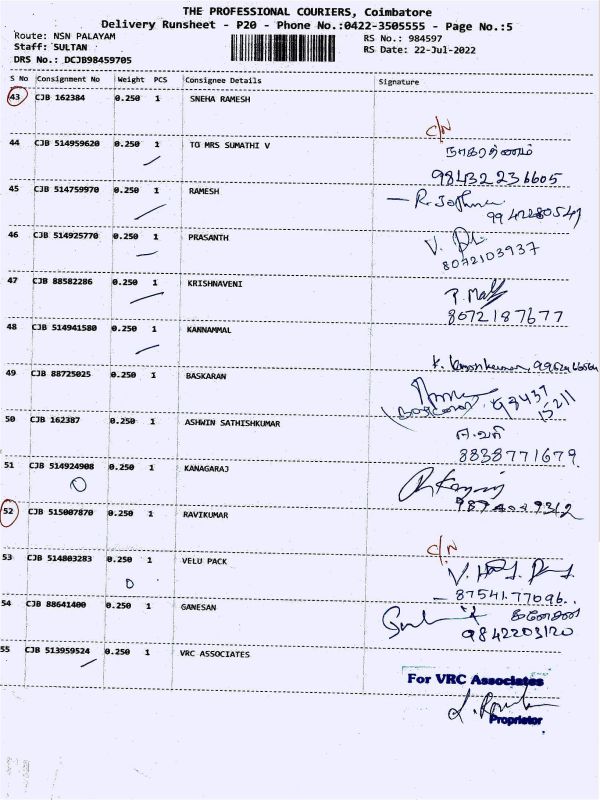 THE PROFESSIONAL COURIERS, Coimbatore
Delivery Runsheet - P20 - Phone No.:0422-3505555 - Page No.:5
Route: NSN PALAYAM
Staff: SULTAN
DRS No.: DCJB98459705
RS No.: 984597
RS Date: 22-Jul-2022
S No Consignment No Weight PCS Consignee Details Signature
43 CJB 162384 0.250 1 SNEHA RAMESH
C/N
44 CJB 514959620 0.250 1 TO MRS SUMATHI V
நாகரத்ினம்
98432 236605
45 CJB 514759970 0.250 1 RAMESH
9942280547
46 CJB 514925770 0.250 1 PRASANTH
8072103937
47 CJB 88582286 0.250 1 KRISHNAVENI
8072187677
48 CJB 514941580 0.250 1 KANNAMMAL
49 CJB 88725025 0.250 1 BASKARAN
98437
15211
50 CJB 162387 0.250 1 ASHWIN SATHISHKUMAR
8838771679
51 CJB 514924908 0.250 1 KANAGARAJ
52 CJB 515007870 0.250 1 RAVIKUMAR
C/N
53 CJB 514803283 0.250 1 VELU PACK
87541.77096
54 CJB 88641400 0.250 1 GANESAN
கணேசன்
9842203120
55 CJB 513959524 0.250 1 VRC ASSOCIATES
For VRC Associates
Proprietor